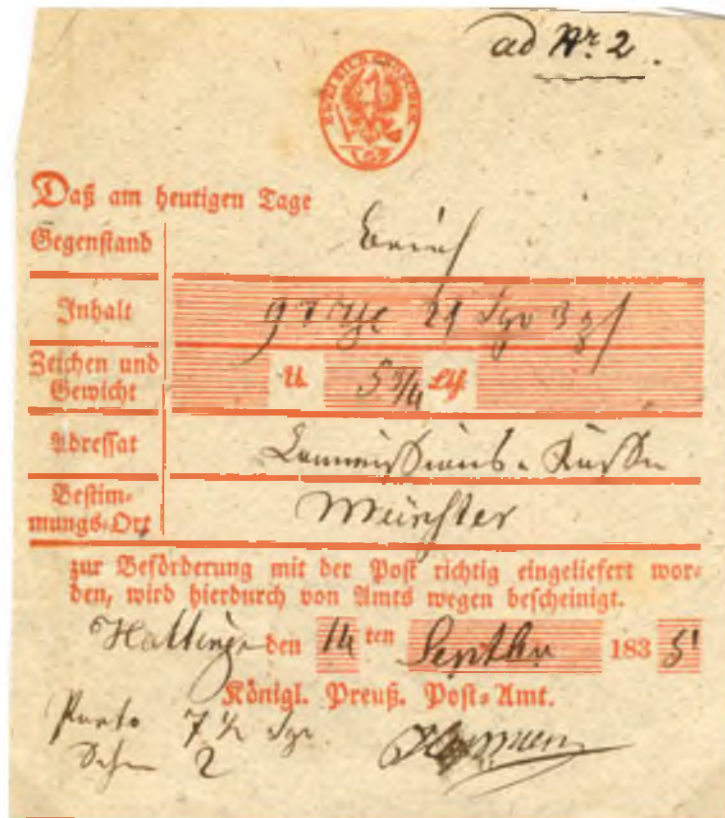 ad Nr. 2.
Daß am heutigen Tage
Gegenstand Brief
Inhalt 21 Sgr
Zeichen und
Gewicht U. 5 3/4 Lth.
Adressat Commissions-Kasse
Bestim-
mungs-Ort Münster
zur Beförderung mit der Post richtig eingeliefert wor-
den, wird hierdurch von Amts wegen bescheinigt.
Hattingen den 14 ten Septbr 1835
Königl. Preuß. Post-Amt.
Porto 7 1/2 Sgr.
2